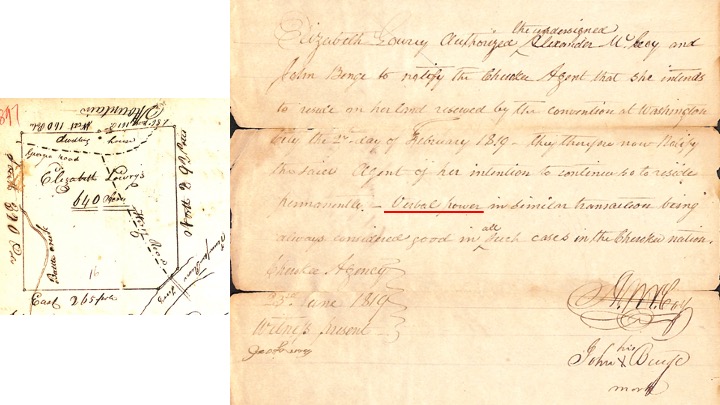 West 160 Po.
Mountain
dwelling house
Georgia road
Elizabeth Lowry's
640 Acres
North 390 Po
Battle creek
16
East 265 pole
the undersigned
Elizabeth Lowry Authorized Alexander McCoy and
John Benge to notify the Cherokee Agent that she intends
to reside on her land reserved by the convention at Washington
City the day of February 1819 - they therefore now Notify
the said Agent of her intention to continue so to reside
permanently. - Verbal power in similar transaction being
all
always considered good in such cases in the Cherokee nation.
Cherokee Agency
June 1819
Witness present
his
John X Benge
mark